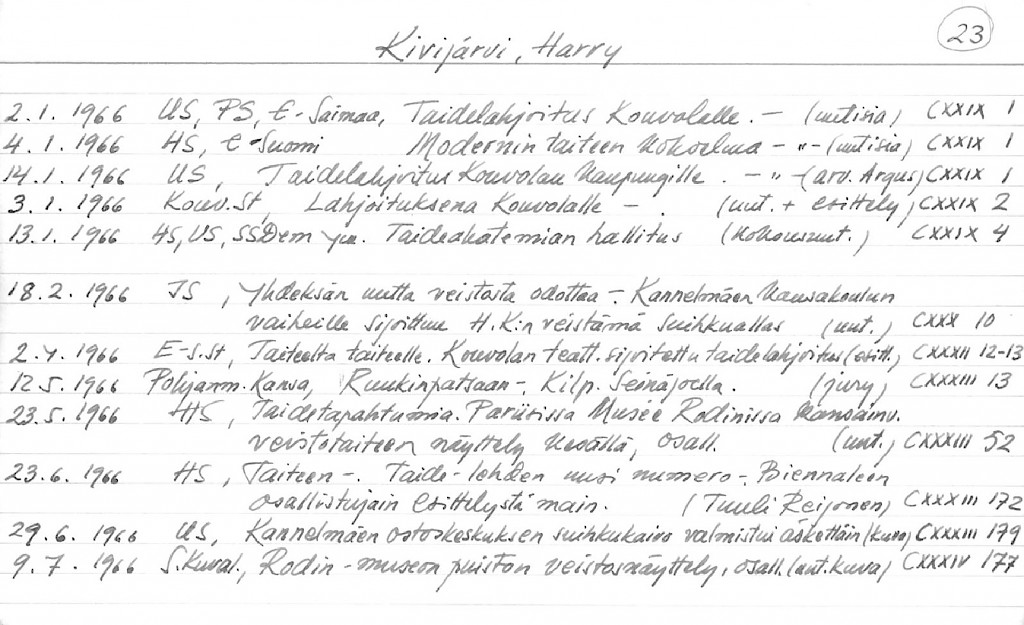 23
Kivijärvi, Harry
2.1. 1966 US, PS, E-Saimaa, Taidelahjoitus Kouvolalle. — (uutisia) CXXIX 1
4.1. 1966 HS, E-Suomi Modernin taiteen kokoelma - " - (uutisia) CXXIX 1
14.1. 1966 US, Taidelahjoitus Kouvolan kaupungille. - " - (arv. Argus) CXXIX 1
3.1. 1966 Kouv.St, Lahjoituksena Kouvolalle - . (uut. + esittely) CXXIX 2
13.1. 1966 HS, US, SSDem ym. Taideakatemian hallitus (kokousuut.) CXXIX 4
18.2. 1966 IS, Yhdeksän uutta veistosta odottaa -. Kannelmäen kansakoulun
vaiheille sijoittuu H.K:n veistämä suihkuallas (uut.) CXXX 10
2.4. 1966 E-S.St, Taiteelta taiteelle. Kouvolan teatt. sijoitettu taidelahjoitus (esitt.) CXXXII 12-13
12.5. 1966 Pohjanm. Kansa, Ruukinpatsaan -, Kilp. Seinäjoella. (jury) CXXXIII 13
23.5. 1966 HS, Taidetapahtumia. Pariisissa Musée Rodinissa kansainv.
veistotaiteen näyttely kesällä, osall. (uut.) CXXXIII 52
23.6. 1966 HS, Taiteen -. Taide-lehden uusi numero -. Biennaleen
osallistujain esittelystä main. (Tuuli Reijonen) CXXXIII 172
29.6. 1966 US, Kannelmäen ostoskeskuksen suihkukaivo valmistui äskettäin (kuva) CXXXIII 179
9.7. 1966 S.Kuval., Rodin-museon puiston veistosnäyttely, osall. (uut. kuva) CXXXIV 177